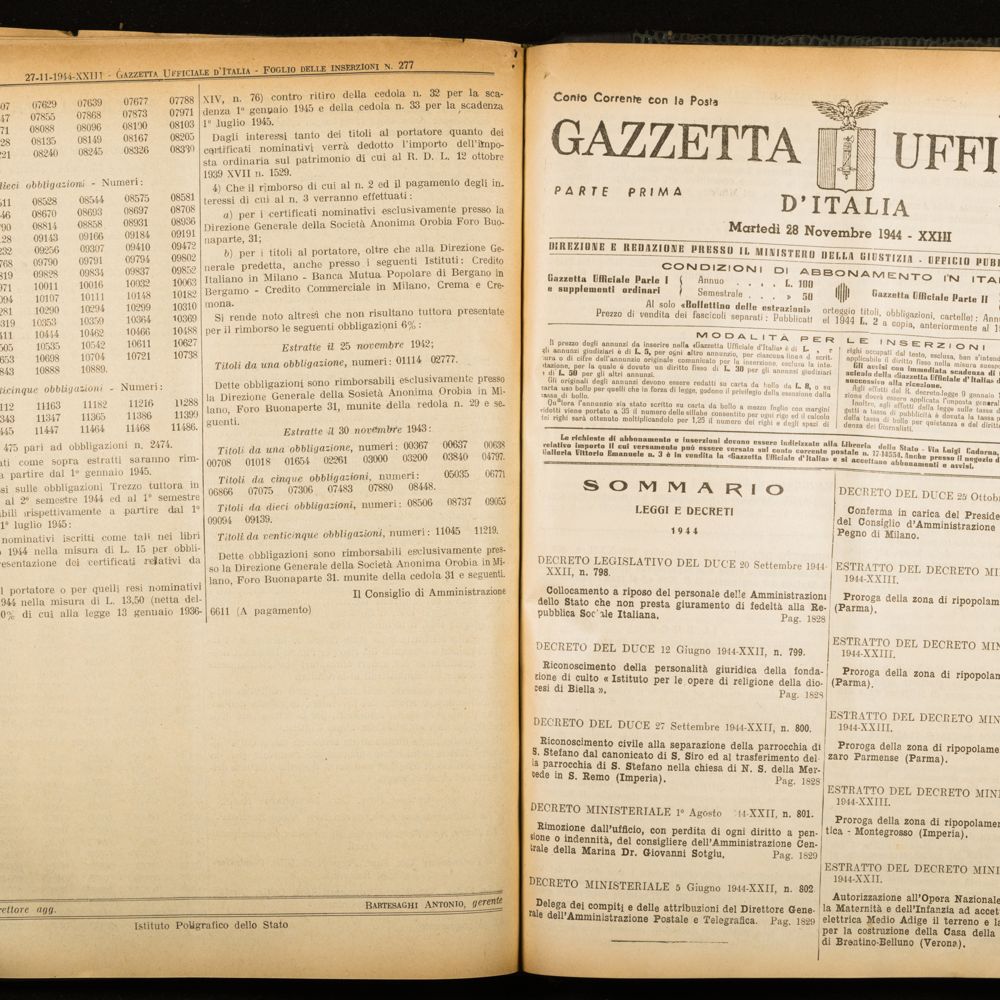 27-11-1944-XXIII - GAZZETTA UFFICIALE D'ITALIA - FOGLIO DELLE INSERZIONI N. 277
07 07629 07639 07677 07788
47 07855 07868 07873 07971
71 08088 08096 08190 08103
28 08135 08149 08167 08205
221 08240 08245 08326 08330
dieci obbligazioni - Numeri:
511 08528 08544 08575 08581
46 08670 08693 08697 08708
790 08814 08858 08931 08936
128 09143 09166 09184 09191
232 09256 09307 09410 09472
768 09790 09791 09794 09802
819 09828 09834 09837 09852
971 10011 10016 10032 10063
094 10107 10111 10148 10182
281 10290 10294 10299 10310
319 10353 10359 10364 10369
411 10444 10462 10466 10488
505 10535 10542 10611 10627
653 10698 10704 10721 10738
843 10888 10889.
nticinque obbligazioni - Numeri:
112 11163 11182 11216 11288
343 11347 11365 11386 11399
445 11447 11464 11468 11486.
475 pari ad obbligazioni n. 2474.
ati come sopra estratti saranno rim-
a partire dal 1° gennaio 1945.
si sulle obbligazioni Trezzo tuttora in
al 2° semestre 1944 ed al 1° semestre
abili rispettivamente a partire dal 1°
1° luglio 1945:
nominativi iscritti come tali nei libri
1944 nella misura di L. 15 per obbli-
esentazione dei certificati relativi da
l portatore o per quelli resi nominativi
944 nella misura di L. 13,50 (netta del-
0% di cui alla legge 13 gennaio 1936-
XIV, n. 76) contro ritiro della cedola n. 32 per la sca-
denza 1° gennaio 1945 e della cedola n. 33 per la scadenza
1° luglio 1945.
Dagli interessi tanto dei titoli al portatore quanto dei
certificati nominativi verrà dedotto l'importo dell'impo-
sta ordinaria sul patrimonio di cui al R. D. L. 12 ottobre
1939 XVII n. 1529.
4) Che il rimborso di cui al n. 2 ed il pagamento degli in-
teressi di cui al n. 3 verranno effettuati:
a) per i certificati nominativi esclusivamente presso la
Direzione Generale della Società Anonima Orobia Foro Buo-
naparte, 31;
b) per i titoli al portatore, oltre che alla Direzione Ge-
nerale predetta, anche presso i seguenti Istituti: Credito
Italiano in Milano - Banca Mutua Popolare di Bergamo in
Bergamo - Credito Commerciale in Milano, Crema e Cre-
mona.
Si rende noto altresì che non risultano tuttora presentate
per il rimborso le seguenti obbligazioni 6%:
Estratte il 25 novembre 1942;
Titoli da una obbligazione, numeri: 01114 02777.
Dette obbligazioni sono rimborsabili esclusivamente presso
la Direzione Generale della Società Anonima Orobia in Mi-
lano, Foro Buonaparte 31, munite della redola n. 29 e se-
guenti.
Estratte il 30 novembre 1943:
Titoli da una obbligazione, numeri: 00367 00637 00638
00708 01018 01654 02261 03000 03200 03840 04797.
Titoli da cinque obbligazioni, numeri: 05035 06771
06866 07075 07306 07483 07880 08448.
Titoli da dieci obbligazioni, numeri: 08506 08737 09055
09094 09139.
Titoli da venticinque obbligazioni, numeri: 11045 11219.
Dette obbligazioni sono rimborsabili esclusivamente pres-
so la Direzione Generale della Società Anonima Orobia in Mi-
lano, Foro Buonaparte 31. munite della cedola 31 e seguenti.
Il Consiglio di Amministrazione
6611 (A pagamento)
rettore agg.
BARTESAGHI ANTONIO, gerente
Istituto Poligrafico dello Stato
Conto Corrente con la Posta
GAZZETTA UFFI
PARTE PRIMA
D'ITALIA
Martedì 28 Novembre 1944 - XXIII
DIREZIONE E REDAZIONE PRESSO IL MINISTERO DELLA GIUSTIZIA - UFFICIO PUB
CONDIZIONI DI ABBONAMENTO IN ITA
Gazzetta Ufficiale Parte I e supplementi ordinari
Annuo . . . . L. 100
Semestrale . . . . » 50
Gazzetta Ufficiale Parte II
Al solo «Bollettino delle estrazioni» orteggio titoli, obbligazioni, cartelle): Ann
Prezzo di vendita dei fascicoli separati: Pubblicati el 1944 L. 2 a copia, anteriormente al
MODALITÀ PER LE INSERZIONI
Il prezzo degli annunzi da inserire nella «Gazzetta Ufficiale d'Italia» è di L.
gli annunzi giudiziari e di L. 5, per ogni altro annunzio, per ciascuna linea di scrit-
tura o di cifre dell'annunzio originale comunicato per la inserzione, esclusa la inte-
stazione, per la quale è dovuto un diritto fisso di L. 30 per gli annunzi giudiziari
e di L. 50 per gli altri annunzi.
Gli originali degli annunzi devono essere redatti su carta da bollo da L. 8, o su
carta uso bollo per quelli che in forza di legge, godono il privilegio della esenzione dalla
tassa di bollo.
Qualora l'annunzio sia stato scritto su carta da bollo a mezzo foglio con margini
ridotti viene portato a 35 il numero delle sillabe consentite per ogni rigo ed il calcolo
dei righi sarà ottenuto moltiplicandolo per 1,25 il numero dei righi e degli spazi di
righi occupati dal testo, esclusa, ben s'intend
applicabile il diritto fisso nella misura accenn
Gli avvisi con immediata scadenza di
ufficiale della «Gazzetta Ufficiale d'Italia»
successivo alla ricezione.
Le richieste di abbonamento e inserzioni devono essere indirizzate alla Libreria dello Stato - Via Luigi Cadorna,
relativo importo il cui versamento può essere versato sul conto corrente postale n. 17-14554. Anche presso il negozio d
Galleria Vittorio Emanuele n. 3 è in vendita la «Gazzetta Ufficiale d'Italia» e si accettano abbonamenti e avvisi.
SOMMARIO
LEGGI E DECRETI
1944
DECRETO LEGISLATIVO DEL DUCE 20 Settembre 1944-
XXII, n. 798.
Collocamento a riposo del personale delle Amministrazioni
dello Stato che non presta giuramento di fedeltà alla Re-
pubblica Sociale Italiana. Pag. 1828
DECRETO DEL DUCE 12 Giugno 1944-XXII, n. 799.
Riconoscimento della personalità giuridica della fonda-
zione di culto « Istituto per le opere di religione della dio-
cesi di Biella ». Pag. 1828
DECRETO DEL DUCE 27 Settembre 1944-XXII, n. 800.
Riconoscimento civile alla separazione della parrocchia di
S. Stefano dal canonicato di S. Siro ed al trasferimento del-
la parrocchia di S. Stefano nella chiesa di N. S. della Mer-
cede in S. Remo (Imperia). Pag. 1828
DECRETO MINISTERIALE 1° Agosto 44-XXII, n. 801.
Rimozione dall'ufficio, con perdita di ogni diritto a pen-
sione o indennità, del consigliere dell'Amministrazione Cen-
trale della Marina Dr. Giovanni Sotgiu. Pag. 1829
DECRETO MINISTERIALE 5 Giugno 1944-XXII, n. 802
Delega dei compiti e delle attribuzioni del Direttore Gene-
rale dell'Amministrazione Postale e Telegrafica. Pag. 1829
DECRETO DEL DUCE 25 Ottob
Conferma in carica del Preside
del Consiglio d'Amministrazione
Pegno di Milano.
ESTRATTO DEL DECRETO MI
1944-XXIII.
Proroga della zona di ripopolam
(Parma).
ESTRATTO DEL DECRETO MIN
1944-XXIII.
Proroga della zona di ripopolam
(Parma).
ESTRATTO DEL DECRETO MIN
1944-XXIII.
Proroga della zona di ripopolame
zaro Parmense (Parma).
ESTRATTO DEL DECRETO MINI
1944-XXIII.
Proroga della zona di ripopolamen
tica - Montegrosso (Imperia).
ESTRATTO DEL DECRETO MINI
1944-XXII.
Autorizzazione all'Opera Nazionale
la Maternità e dell'Infanzia ad accet
elettrica Medio Adige il terreno e la
per la costruzione della Casa della
di Brentino-Belluno (Verona).